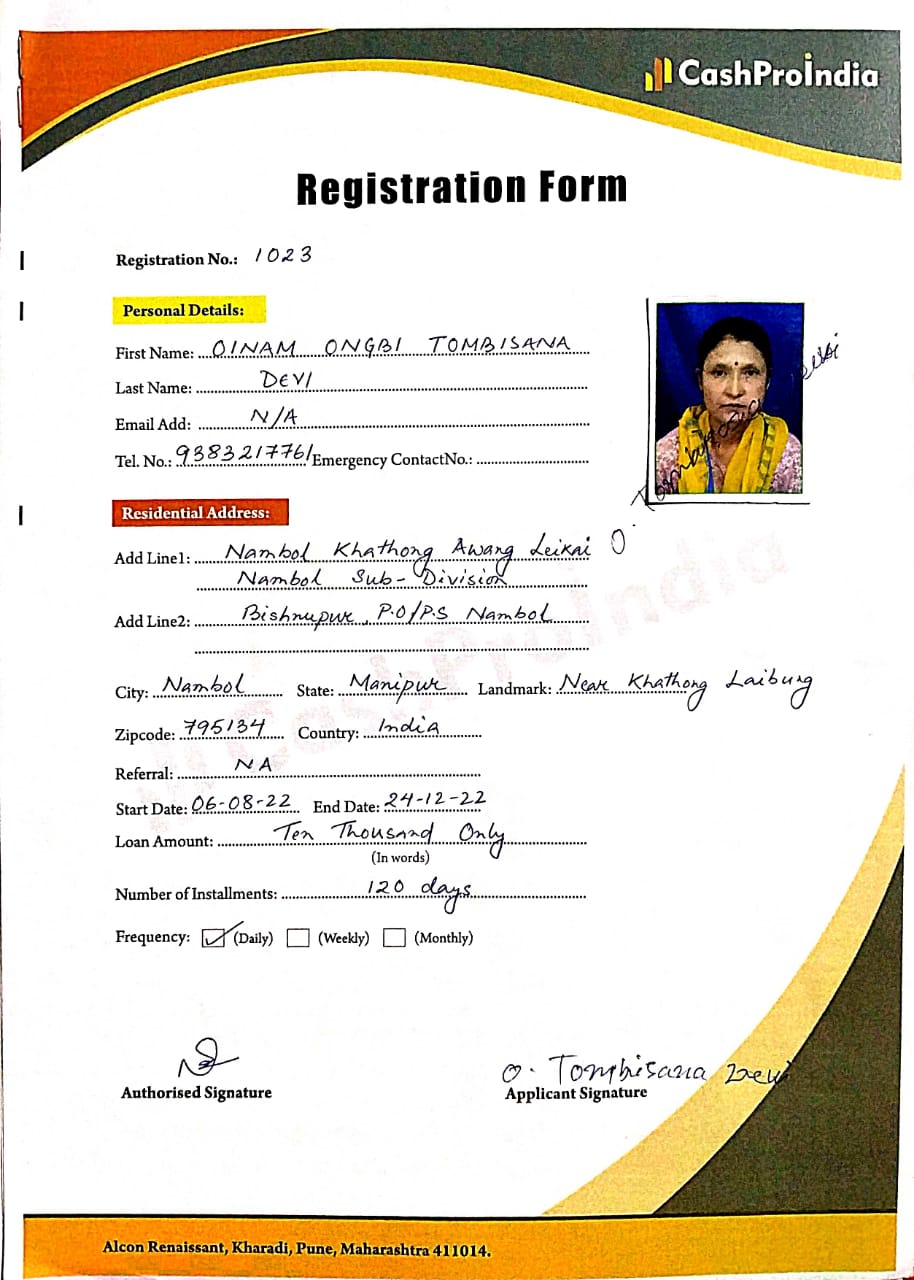 CashProIndia
Registration Form
Registration No.: 1023
Personal Details:
First Name: OINAM ONGBI TOMBISANA
Last Name: DEVI
Email Add: N/A
Tel. No.: 9383217761 Emergency ContactNo.:
Residential Address:
Add Line1: Nambol Khathong Awang Leikai
Nambol Sub-Division
Add Line2: Bishnupur, P.O/P.S Nambol
City: Nambol State: Manipur Landmark: Near Khathong Laibung
Zipcode: 795134 Country: India
Referral: NA
Start Date: 06-08-22 End Date: 24-12-22
Loan Amount: Ten Thousand Only
(In words)
Number of Installments: 120 days
Frequency: (Daily) (Weekly) (Monthly)
O. Tombisana Devi
Authorised Signature Applicant Signature
Alcon Renaissant, Kharadi, Pune, Maharashtra 411014.
CashProIndia